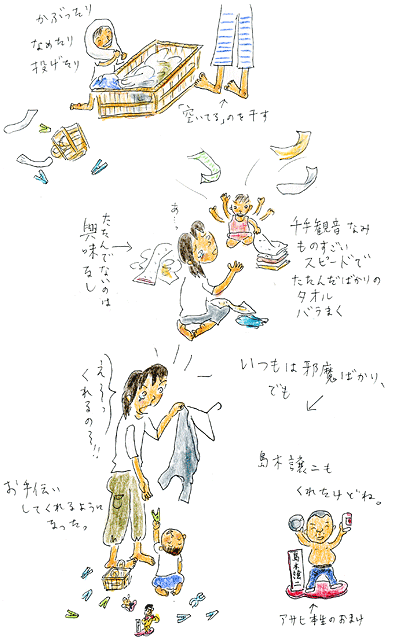 かぶったり
なめたり
投げたり
「空いてる」のを干す
あ…っ
たたんでないのは
興味なし
千手観音なみ
ものすごい
スピードで
たたんだばかりの
タオル
バラまく
え〜っ
くれるのぉ!!
いつもは邪魔ばかり、
でも
お手伝い
してくれるように
なった。
島木譲二も
くれたけどね。
島木譲二
アサヒ本生のおまけ